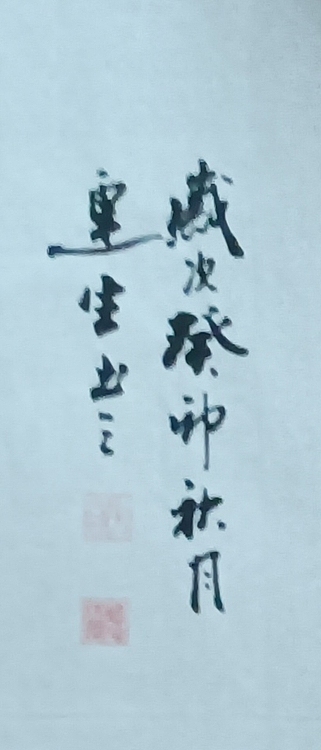 歲次癸卯秋月
連生書之